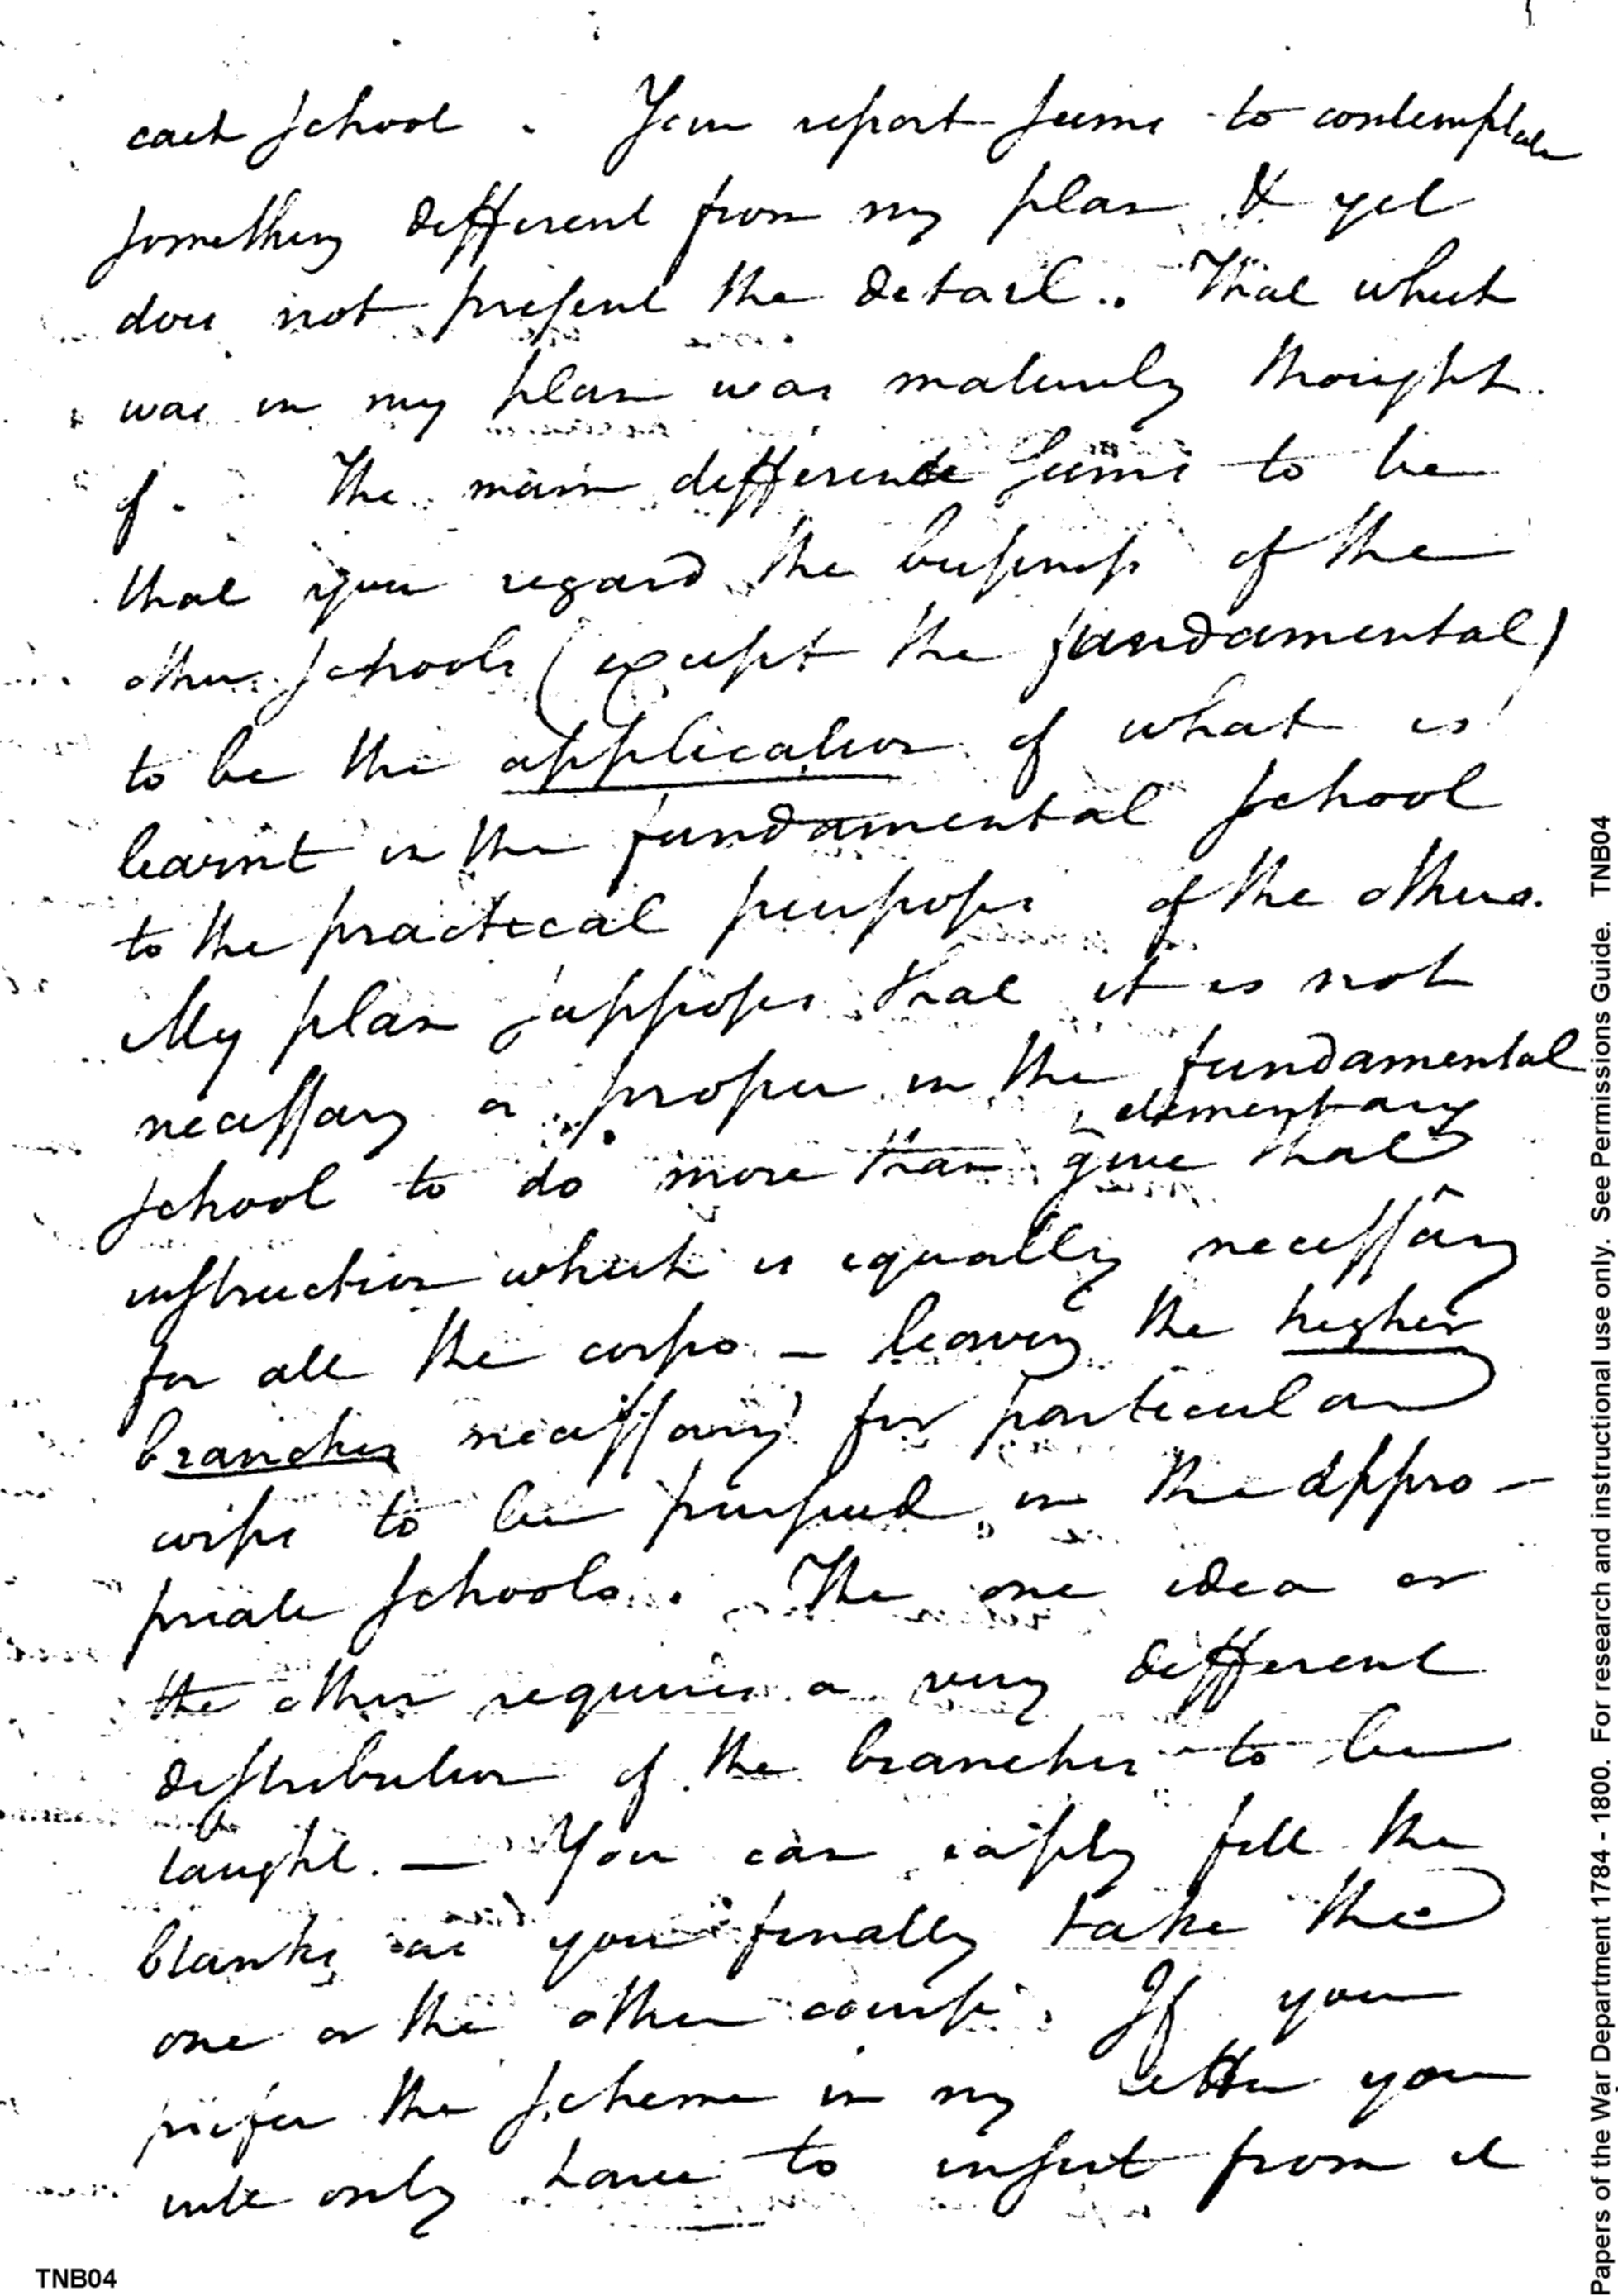 each school. Your report seems to contemplate
something different from my plan & yet
does not present the detail. That which
was in my plan was maturely thought
of. The main difference seems to be
that you regard the business of the
other schools (except the fundamental)
to be the application of what is
learnt in the fundamental school
to the practical purposes of the others.
My plan supposes that it is not
necessary or proper in the fundamental
elementary
school to do more than give that
instruction which is equally necessary
for all the corps – leaving the higher
branches necessary for particular
corps to be pursued in the appro-
priate schools. The one idea or
the other requires a very different
distribution of the branches to be
taught. — You can easily fill the
blanks as you finally take the
one or the other course. If you
prefer the scheme in my letter you
will only have to insert from it
TNB04
Papers of the War Department 1784 - 1800. For research and instructional use only. See Permissions Guide. TNB04